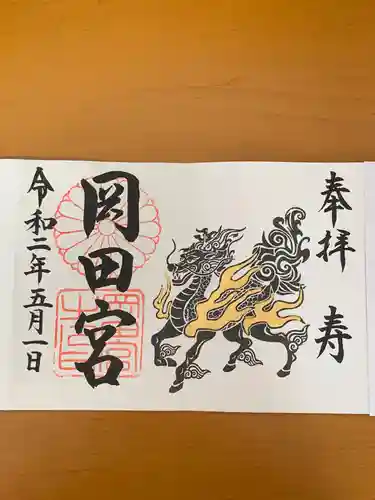 奉拝
寿
岡田宮
令和二年五月一日